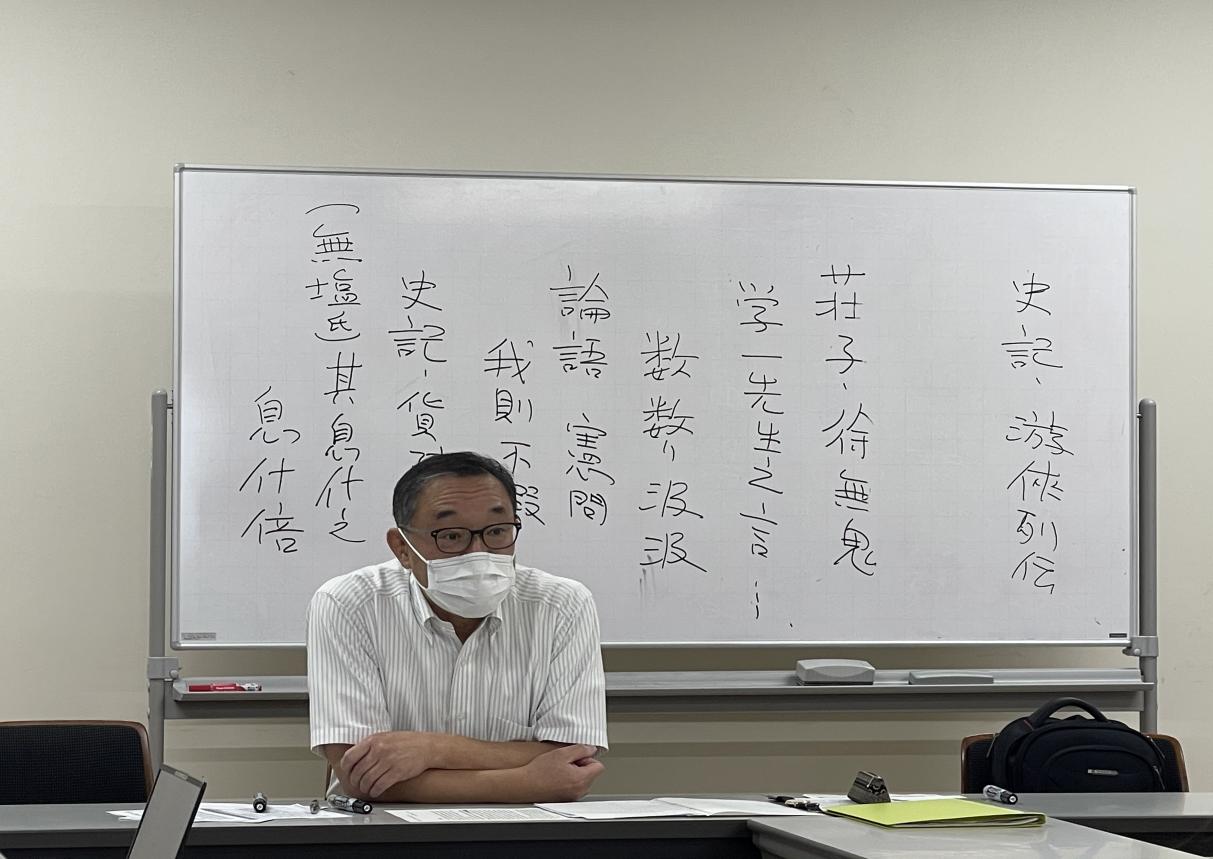 史記、游俠列伝
荘子、徐無鬼
学一先生之言…
数数汲汲
論語 憲問
我則不暇
史記、貨
(無塩氏)其息什之
息什倍